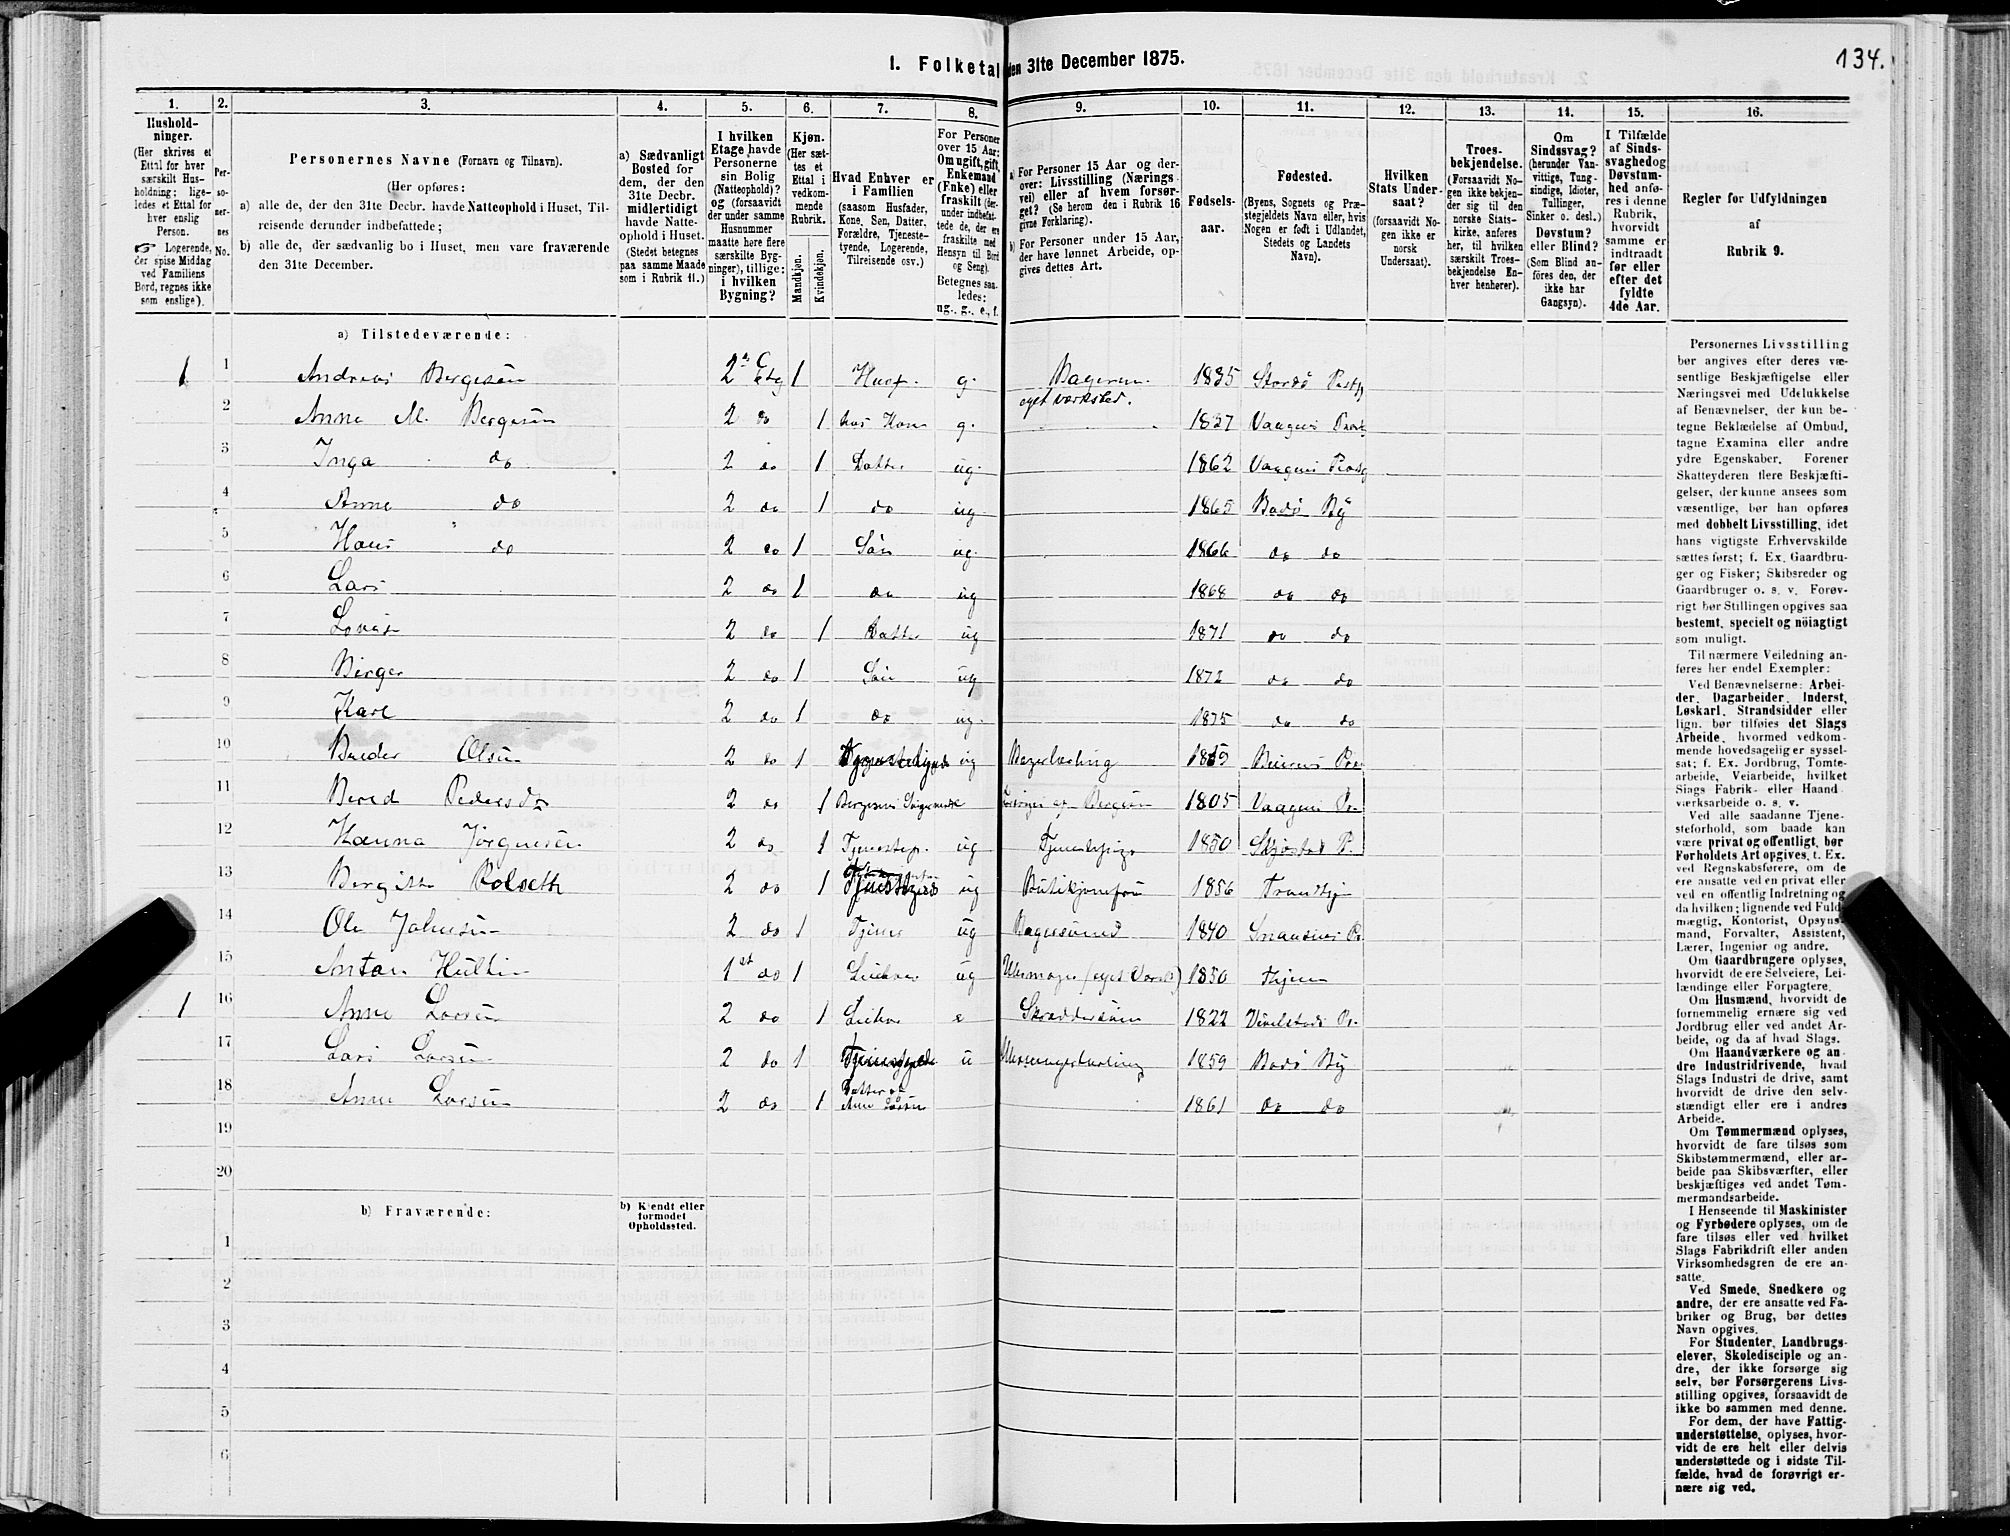 134.
1. Folketal den 31te December 1875.
1. 2. 3. 4. 5. 6. 7. 8. 9. 10. 11. 12. 13. 14. 15. 16.
Hushold-
ninger.
(Her skrives et
Ettal for hver
særskilt Hus-
holdning; lige-
ledes et Ettal for
hver enslig
Person.
☞ Logerende,
der spise Middag
ved Familiens
Bord, regnes ikke
som enslige).
Per-
so-
ner-
nes
No.
Personernes Navne (Fornavn og Tilnavn).
(Her opføres:
a) alle de, der den 31te Decbr. havde Natteophold i Huset, Til-
reisende derunder indbefattede;
b) alle de, der sædvanlig bo i Huset, men vare fraværende
den 31te December.
a) Sædvanligt
Bosted for
dem, der den
31te Decbr.
midlertidigt
havde Natte-
ophold i Huset.
(Stedet betegnes
paa samme Maade
som i Rubrik 11.)
I hvilken
Etage havde
Personerne
sin Bolig
(Natteophold)?
og (forsaavidt
der under samme
Husnummer
maatte høre flere
særskilte Byg-
ninger), tillige:
i hvilken
Bygning?
Kjøn.
(Her sæt-
tes et
Ettal i
vedkom-
mende
Rubrik.
Mandkjøn.
Kvindekjøn.
Hvad Enhver er
i Familien
(saasom Husfader,
Kone, Søn, Datter,
Forældre, Tjeneste-
tyende, Logerende,
Tilreisende osv.)
For Personer
over 15 Aar:
Om ugift, gift,
Enkemand
(Enke) eller
fraskilt (der-
under indbefat-
tede de, der ere
fraskilte med
Hensyn til Bord
og Seng).
Betegnes saa-
ledes:
ug., g., e., f.
a) For Personer 15 Aar og der-
over: Livsstilling (Nærings-
vei) eller af hvem forsør-
get? (Se herom den i Rubrik 16
givne Forklaring).
b) For Personer under 15 Aar,
der have lønnet Arbeide, op-
gives dettes Art.
Fødsels-
aar.
Fødested.
(Byens, Sognets og Præ-
stegjeldets Navn eller, hvis
Nogen er født i Udlandet,
Stedets og Landets
Navn).
Hvilken
Stats Under-
saat?
(forsaavidt No-
gen ikke er
norsk
Undersaat).
Troes-
bekjendelse.
(Forsaavidt No-
gen ikke bekjen-
der sig til den
norske Stats-
kirke, anføres
her, til hvilken
særskilt Troes-
bekjendelse En-
hver henhører).
Om
Sindssvag?
(herunder Van-
vittige, Tung-
sindige, Idioter,
Tullinger,
Sinker o. desl.)
Døvstum?
eller Blind?
(Som Blind an-
føres den, der
ikke har
Gangsyn).
I Tilfælde
af Sinds-
svaghed og
Døvstum-
hed anfø-
res i denne
Rubrik,
hvorvidt
samme er
indtraadt
før eller
efter det
fyldte
4de Aar.
Regler for Udfyldningen
af
Rubrik 9.
a) Tilstedeværende:
1 1 Andreas Bergesen 2 etg 1 Husf. g. Bager m. eget værksted. 1835 Stordø
2 Anne M. Bergesen 2 do 1 hans Kone g. 1837 Vaagens
3 Inga do 2 do 1 Datter ug. 1862 Vaagens
4 Anne do 2 do 1 do ug 1865 Bodø By
5 Hans do 2 do 1 Sön ug. 1866 do do
6 Lars 2 do 1 do ug 1868 do do
7 2 do 1 Datter ug 1871 do do
8 Birger 2 do 1 Sön ug 1872 do do
9 Karl 2 do 1 do ug. 1875 do do
10 Olsen 2 do 1 ug Bagerlærling
11 Pedersdr 2 do 1 Bergesens 1805 Vaagens Pr
12 Hanna Jörgensen 2 do 1 ug 1850
13 2 do 1 ug 1856 Trondhj
14 Ole Johnsen 2 do 1 Tjener ug Bagersvend 1840
15 Anton Hultin 1st do 1 ug (eget Værkst) 1850
1 16 Anne Larsen 2 do 1 e 1822
17 Lars Larsen 2 do 1 u 1859 Bodø By
18 Anne Larsen 2 do 1 Datter af Anne Larsen 1861 do do
19
20
b) Fraværende:
b) Kjendt eller
formodet
Opholdssted.
1
2
3
4
5
6
Personernes Livsstilling
bør angives efter deres væ-
sentlige Beskjæftigelse eller
Næringsvei med Udelukkelse
af Benævnelser, der kun be-
tegne Beklædelse af Ombud,
tagne Examina eller andre
ydre Egenskaber. Forener
Skatteyderen flere Beskjæfti-
gelser, der kunne ansees som
væsentlige, bør han opføres
med dobbelt Livsstilling, idet
hans vigtigste Erhvervskilde
sættes først; f. Ex. Gaardbru-
ger og Fisker; Skibsreder og
Gaardbruger o. s. v. Forøv-
rigt bør Stillingen opgives saa
bestemt, specielt og nöiagtigt
som muligt.
Til nærmere Veiledning an-
føres her endel Exempler:
Ved Benævnelserne: Arbei-
der, Dagarbeider, Inderst,
Løskarl, Strandsidder eller
lign. bør tilføies det Slags
Arbeide, hvormed vedkom-
mende hovedsagelig er syssel-
sat; f. Ex. Jordbrug, Tomte-
arbeide, Veiarbeide, hvilket
Slags Fabrik- eller Haand
værksarbeide o. s. v.
Ved alle saadanne Tjene-
steforhold, som baade kan
være privat og offentligt, bør
Forholdets Art opgives, f. Ex.
ved Regnskabsførere, om de
ere ansatte ved en privat eller
ved en offentlig Indretning og
da hvilken; lignende ved Fuld-
mægtig, Kontorist, Opsyns-
mand, Forvalter, Assistent,
Lærer, Ingeniør og andre.
Om Gaardbrugere oplyses,
hvorvidt de ere Selveiere, Lei-
lændinge eller Forpagtere.
Om Husmænd, hvorvidt de
fornemmelig ernære sig ved
Jordbrug eller ved andet Ar-
beide, og da af hvad Slags.
Om Haandværkere og an-
dre Industridrivende, hvad
Slags Industri de drive, samt
hvorvidt de drive den selv-
stændigt eller ere i andres
Arbeide.
Om Tømmermænd oplyses,
hvorvidt de fare tilsøs som
Skibstømmermænd, eller ar-
beide paa Skibsværfter, eller
beskjæftiges ved andet Tøm-
mermandsarbeide.
I Henseende til Maskinister
og Fyrbødere oplyses, om de
fare tilsøs eller ved hvilket
Slags Fabrikdrift eller anden
Virksomhedsgren de ere an-
satte.
Ved Smede, Snedkere og
andre, der ere ansatte ved Fa-
briker og Brug, bør dettes
Navn opgives.
For Studenter, Landbrugs-
elever, Skoledisciple og an-
dre, der ikke forsørge sig
selv, bør Forsørgerens Livs-
stilling opgives, forsaavidt de
ikke bo sammen med denne.
For dem, der have Fattig-
understøttelse, oplyses, hvor-
vidt de ere helt eller delvis
understøttede og i sidste Til-
fælde, hvad de forøvrigt er-
nære sig ved.